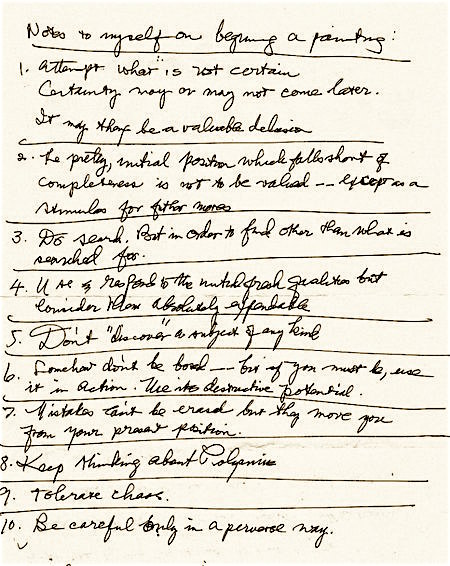 Notes to myself on beginning a painting:
1. Attempt what is not certain
Certainty may or may not come later.
It may then be a valuable delusion
2. The pretty, initial position which falls short of
completeness is not to be valued -- except as a
stimulus for further moves
3. Do search. But in order to find other than what is
searched for.
4. Use & respond to the initial fresh qualities but
consider them absolutely expendable
5. Don't "discover" a subject of any kind
6. Somehow don't be bored -- but if you must, use
it in action. Use its destructive potential.
7. Mistakes can't be erased but they move you
from your present position.
8. Keep thinking about
9. Tolerate chaos.
10. Be careful only in a perverse way.